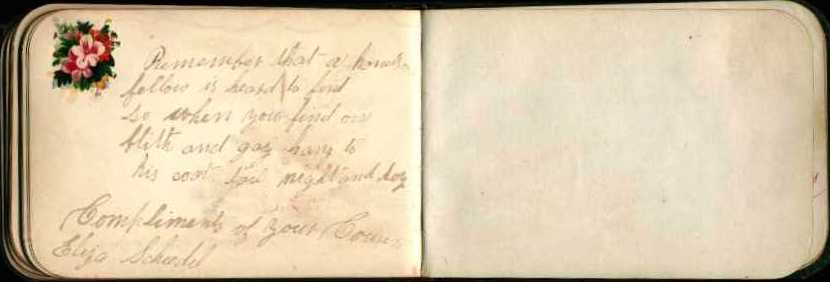 Remember that a hones
fellow is heard to find
so when you find on
blith and gay hang to
his coat tail night and day
Compliments of your Cousin
Eliza Scheedel